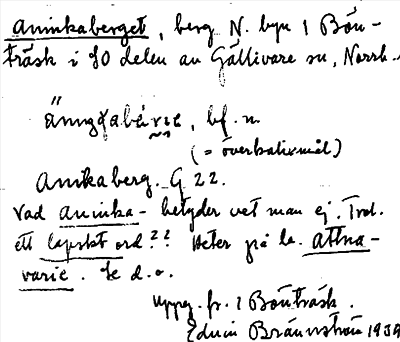 Annikaberget, berg N. byn i Bön-
träsk i SO delen av Gällivare sn, Norrb.
änngkabärje, bf. n.
(= överkalixmål)
Anikaberg. G 22.
Vad annika- betyder vet man ej. Trol.
ett lapskt ord?? Heter på la. attna-
varie. Se d.o.
Uppg. fr. i Bönträsk.
Edvin Brännström 1939